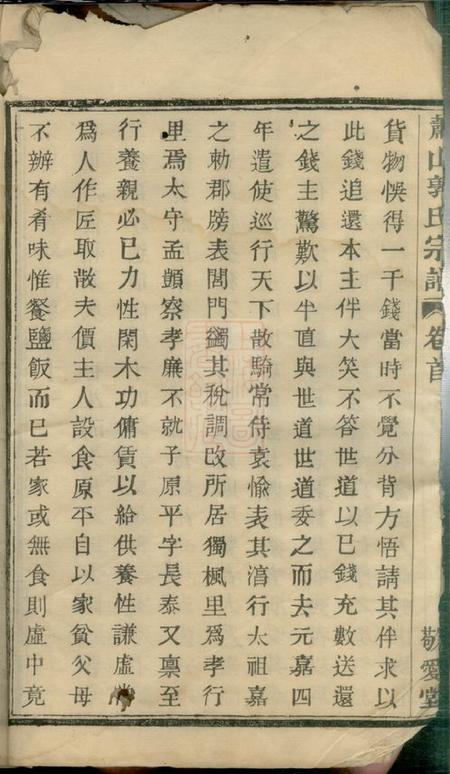 蕭山郭氏宗譜 卷首 敬愛堂
貨物悞得一千錢當時不覺分背方悟請其伴求以
此錢追還本主伴大笑不答世道以已錢充數送還
之錢主驚歎以半直與世道世道委之而去元嘉四
年遣使巡行天下散騎常侍袁愉表其淳行太祖嘉
之勅郡牓表閭門蠲其稅調改所居獨楓里爲孝行
里焉太守孟顗察孝廉不就子原平字長泰又禀至
行養親必已力性閑木功傭賃以給供養性謙虛每
爲人作匠取散夫價主人設食原平自以家貧父母
不辦有肴味惟餐鹽飯而已若家或無食則虛中竟